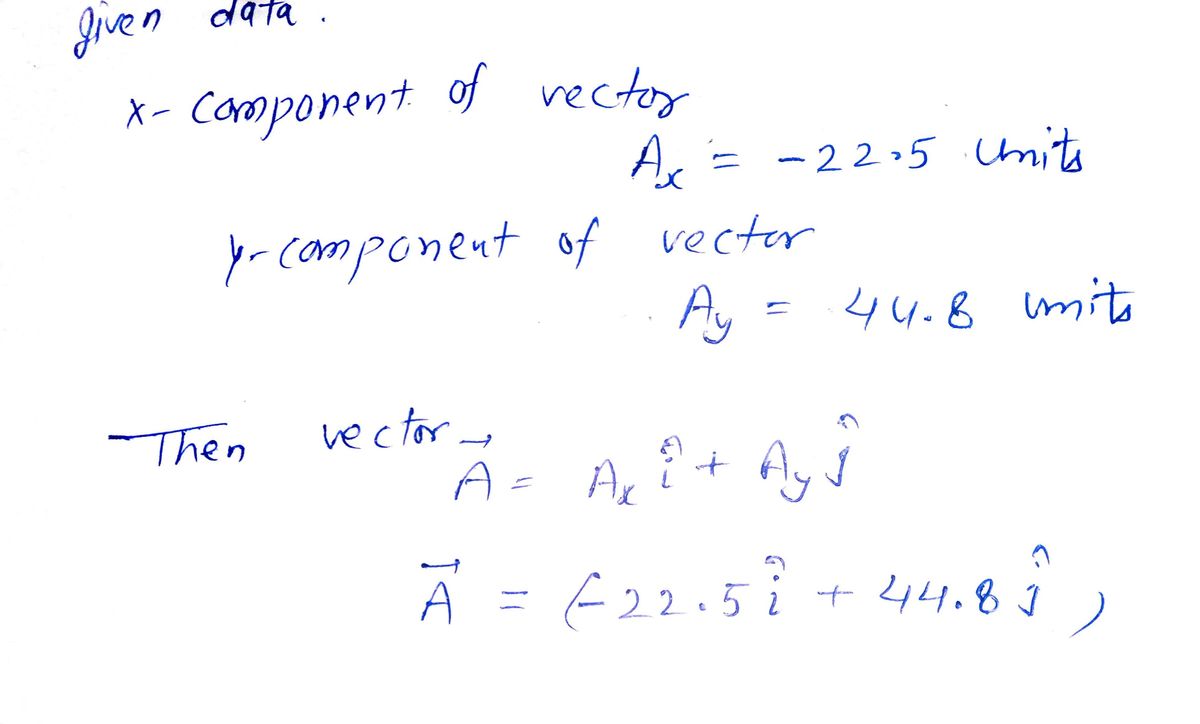 given data.
x- component of vector
Aₓ = -22.5 units
y-component of vector
A_y = 44.8 units
Then vector
A⃗ = Aₓ î + A_y ĵ
A⃗ = (-22.5 î + 44.8 ĵ)